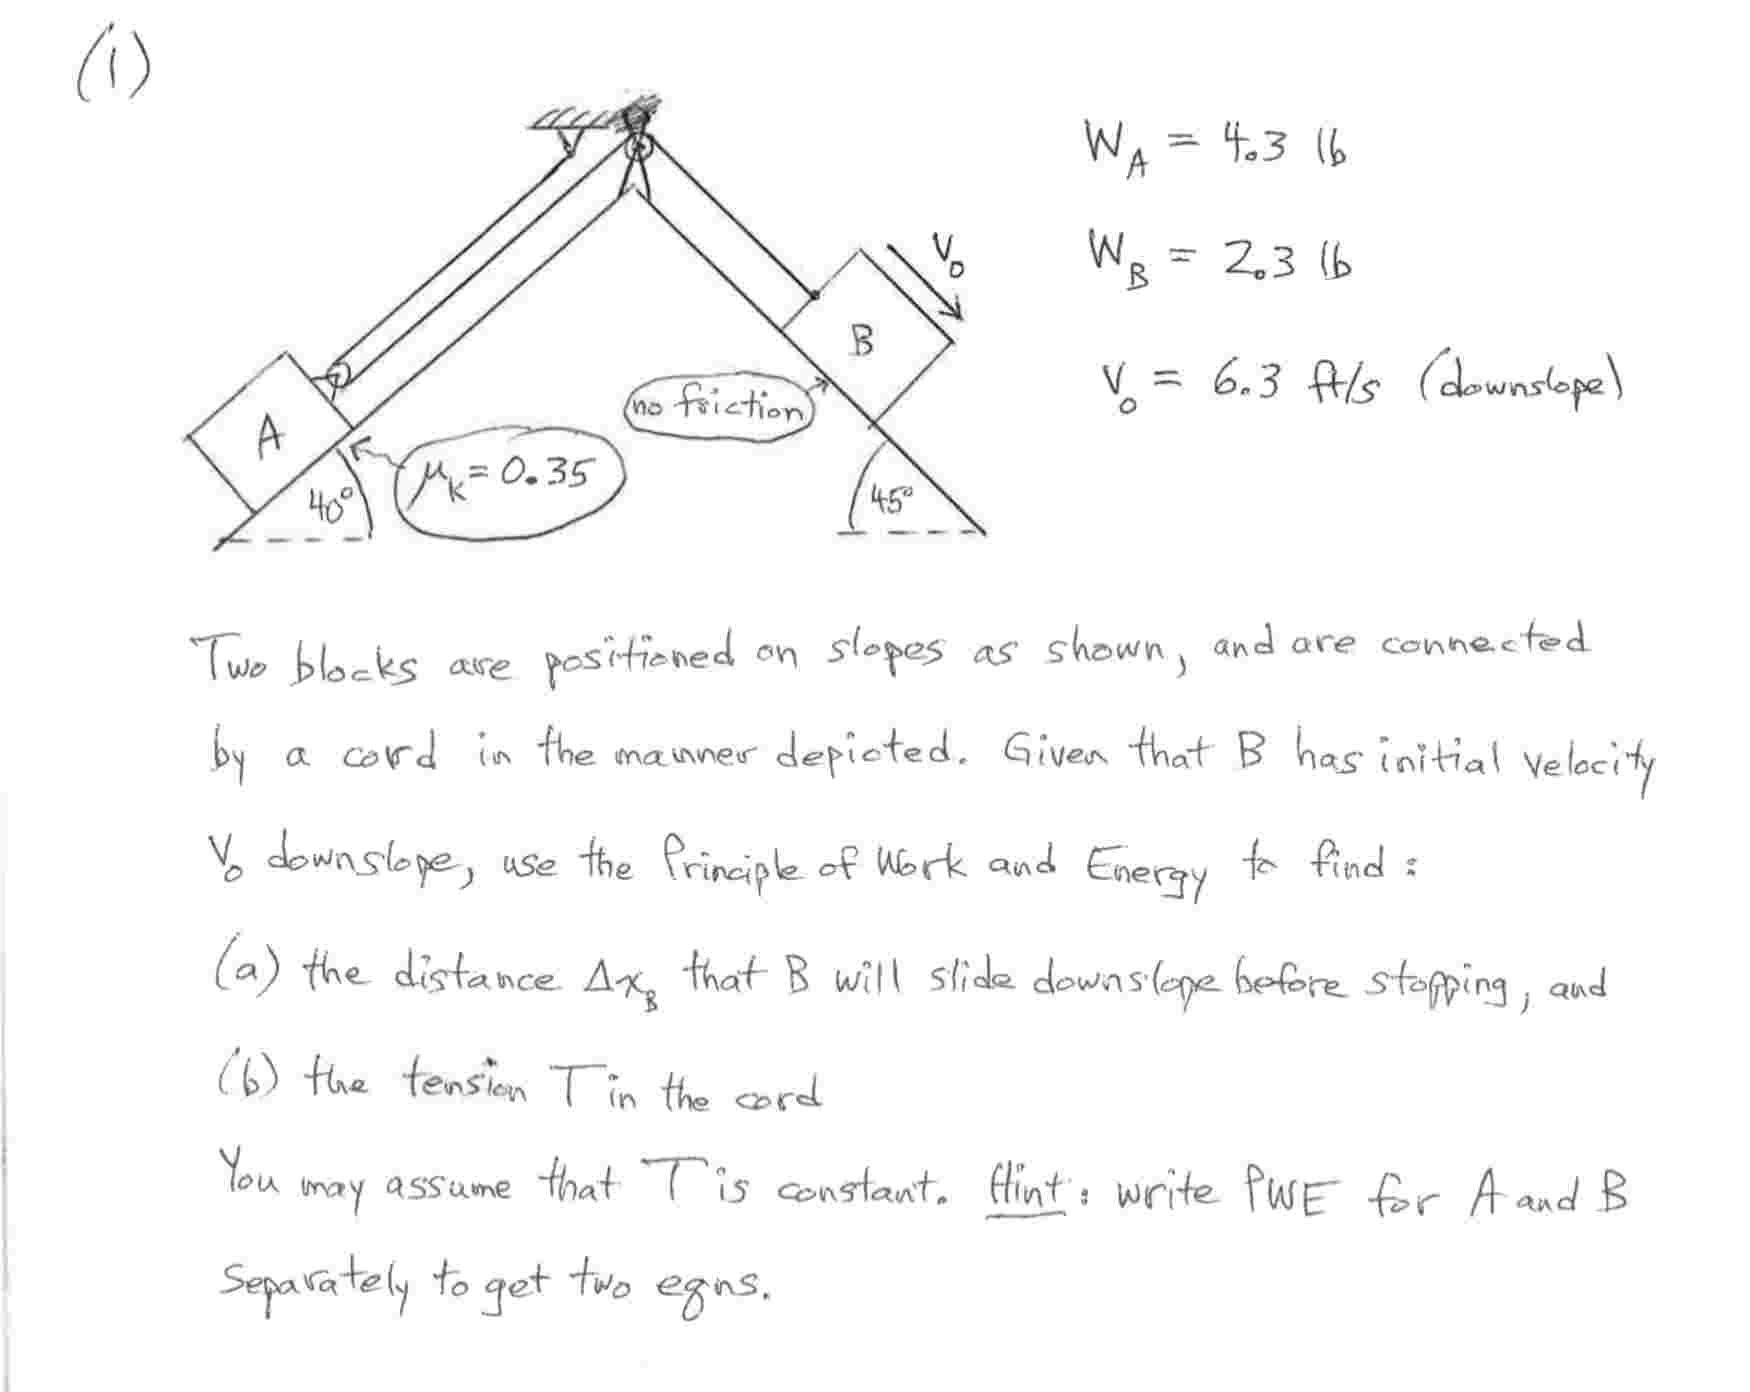 (1)
W_A = 4.3 lb
W_B = 2.3 lb
V_0 = 6.3 ft/s (downslope)
V_0
A
B
no friction
μ_k = 0.35
40°
45°
Two blocks are positioned on slopes as shown, and are connected
by a cord in the manner depicted. Given that B has initial velocity
V_0 downslope, use the Principle of Work and Energy to find :
(a) the distance Δx_B that B will slide downslope before stopping, and
(b) the tension T in the cord
You may assume that T is constant. Hint: write PWE for A and B
separately to get two eqns.